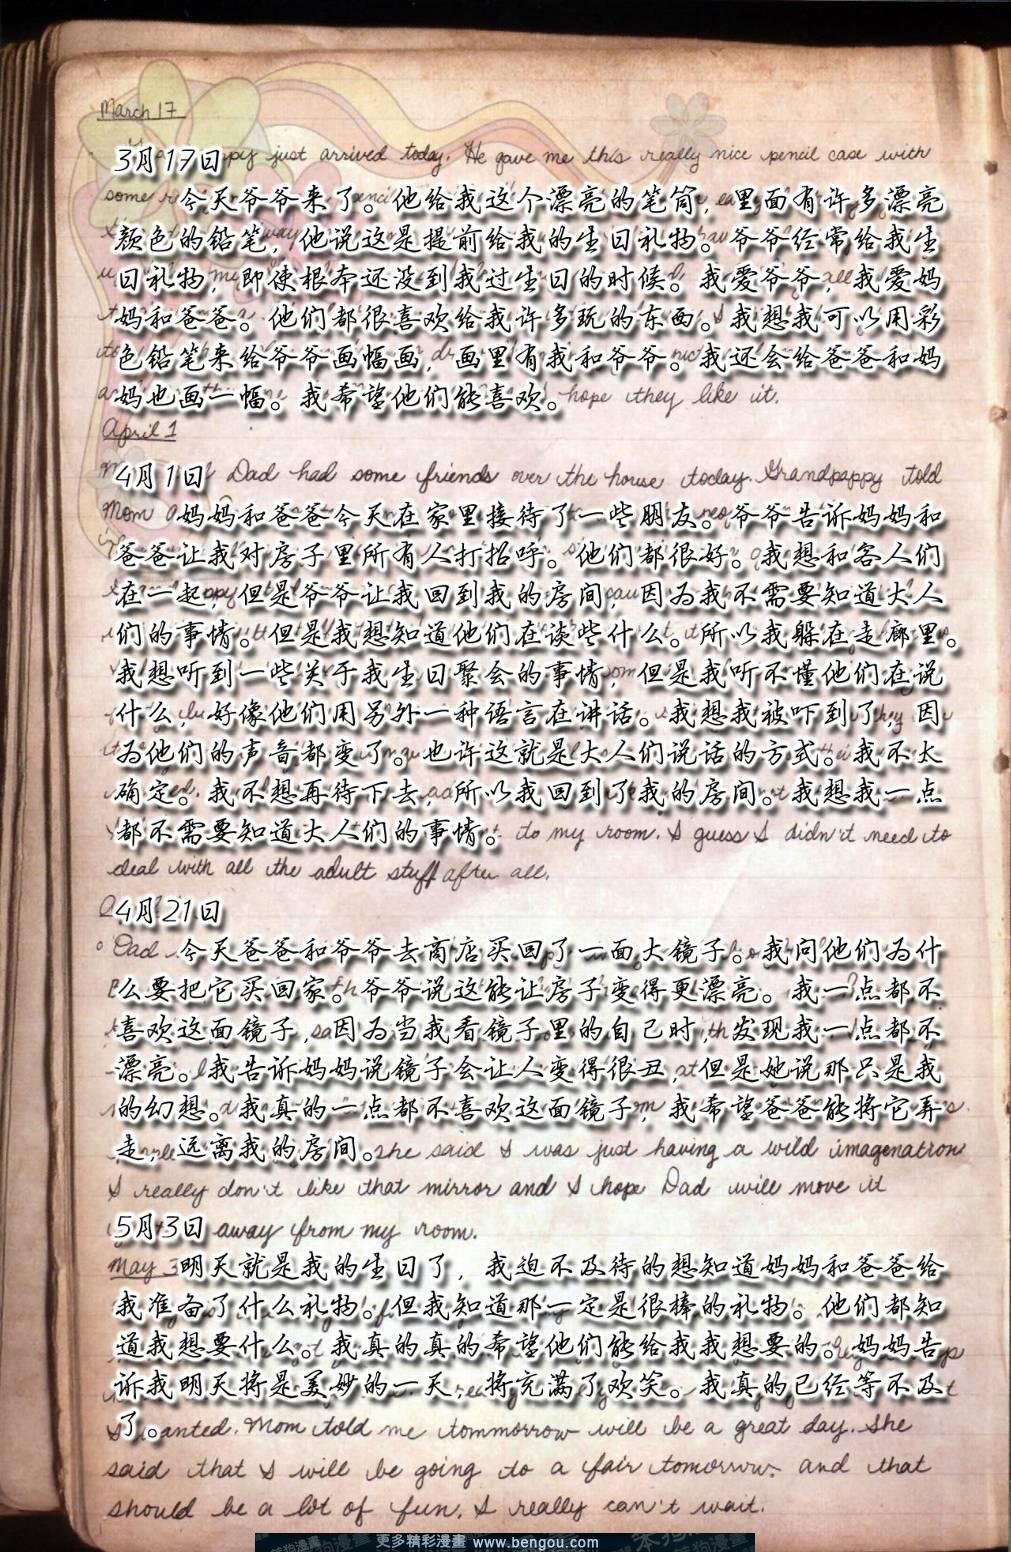 March 17
3月17日 just arrived today. He gave me this really nice pencil case with
some 今天爷爷来了。他给我这个漂亮的笔筒，里面有许多漂亮
颜色的铅笔，他说这是提前给我的生日礼物。爷爷经常给我生
日礼物，即使根本还没到我过生日的时候。我爱爷爷，我爱妈
妈和爸爸。他们都很喜欢给我许多玩的东西。我想我可以用彩
色铅笔来给爷爷画幅画，画里有我和爷爷。我还会给爸爸和妈
妈也画一幅。我希望他们能喜欢。hope they like it.
April 1
4月1日 Dad had some friends over the house today. Grandpappy told
Mom 妈妈和爸爸今天在家里接待了一些朋友。爷爷告诉妈妈和
爸爸让我对房子里所有人打招呼。他们都很好。我想和客人们
在一起，但是爷爷让我回到我的房间，因为我不需要知道大人
们的事情。但是我想知道他们在谈些什么。所以我躲在走廊里。
我想听到一些关于我生日聚会的事情，但是我听不懂他们在说
什么。好像他们用另外一种语言在讲话。我想我被吓到了，因
为他们的声音都变了。也许这就是大人们说话的方式。我不太
确定。我不想再待下去，所以我回到了我的房间。我想我一点
都不需要知道大人们的事情。to my room. I guess I didn't need to
deal with all the adult stuff after all.
4月21日
Dad 今天爸爸和爷爷去商店买回了一面大镜子。我问他们为什
么要把它买回家。爷爷说这能让房子变得更漂亮。我一点都不
喜欢这面镜子，因为当我看镜子里的自己时，发现我一点都不
漂亮。我告诉妈妈说镜子会让人变得很丑，但是她说那只是我
的幻想。我真的一点都不喜欢这面镜子，我希望爸爸能将它弄
走，远离我的房间。she said I was just having a wild imagenation
I really don't like that mirror and I hope Dad will move it
5月3日 away from my room.
May 3 明天就是我的生日了，我迫不及待的想知道妈妈和爸爸给
我准备了什么礼物。但我知道那一定是很棒的礼物。他们都知
道我想要什么。我真的真的希望他们能给我我想要的。妈妈告
诉我明天将是美妙的一天，将充满了欢笑。我真的已经等不及
了。wanted. Mom told me tommorrow will be a great day. She
said that I will be going to a fair tomorrow. and that
should be a lot of fun. I really can't wait.
更多精彩漫畫 www.bengou.com